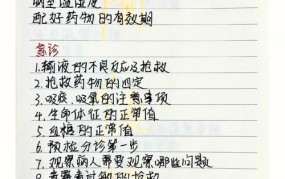 配好药物的有效期
急诊
1.输液的不良反应及抢救
2.抢救药物的四定
3.吸痰、吸氧的注意事项
4.生命体征的正常值
5.血糖的正常值
6.预检分诊第一步
7.观察病人需要观察哪些问题